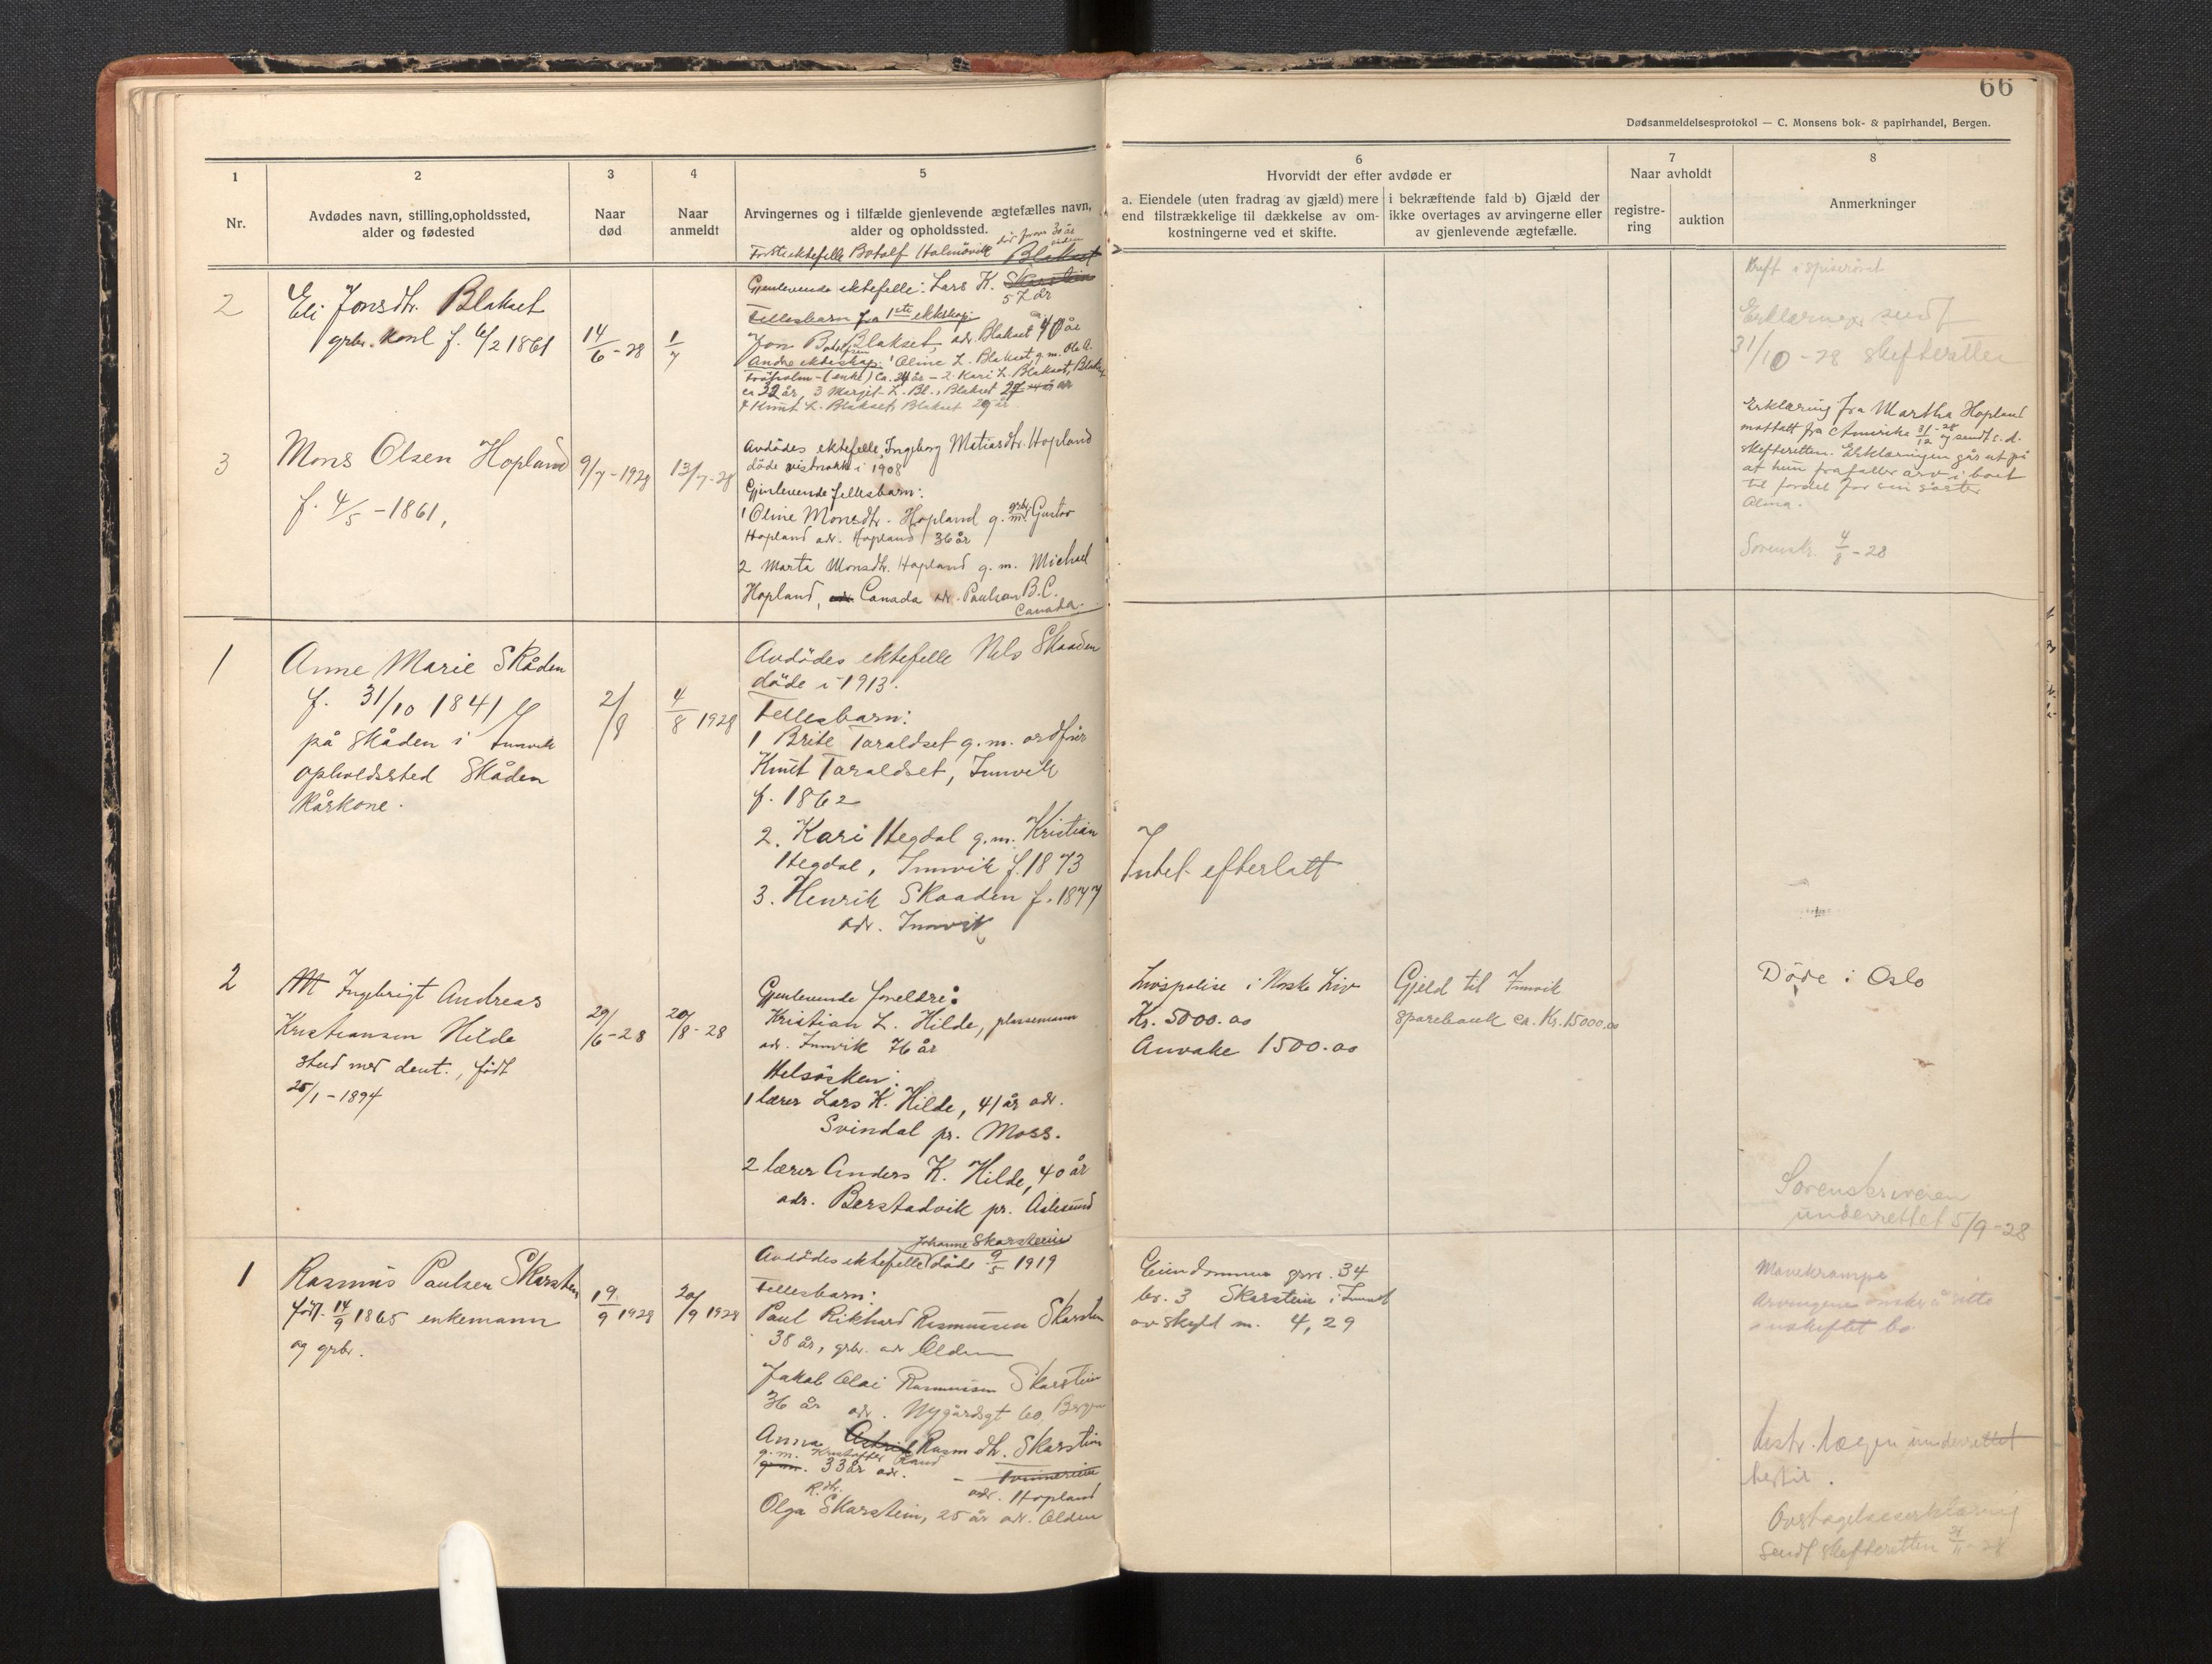 66
Dødsanmeldelsesprotokol — C. Monsens bok- & papirhandel, Bergen.
1
Nr.
2
Avdødes navn, stilling, opholdssted,
alder og fødested
3
Naar
død
4
Naar
anmeldt
5
Arvingernes og i tilfælde gjenlevende ægtefælles navn,
alder og opholdssted.
6
Hvorvidt der efter avdøde er
a. Eiendele (uten fradrag av gjæld) mere
end tilstrækkelige til dækkelse av om-
kostningerne ved et skifte.
i bekræftende fald b) Gjæld der
ikke overtages av arvingerne eller
av gjenlevende ægtefælle.
7
Naar avholdt
registre-
ring
auktion
8
Anmerkninger
2
Eli Jonsdtr. Blakset
grbr. konl f. 6/2 1861
14/6-28
1/7
Første ektefelle Botolf Holmøvik død for 30 år siden
Gjenlevende ektefelle: Lars K. Blakset
57 år
Fellesbarn fra 1ste ekteskap:
Jon Botolfsen Blakset, adr. Blakset ca 40 år
Andre ekteskap: 1 Oline L. Blakset g.m. Ole A.
(enke) ca. 34 år - 2 Kari L. Blakset, Blakset
ca 32 år, 3 Margit L. Bl., Blakset 27 år
4 Knut L. Blakset, Blakset 29 år
Kreft i spiserøret
Erklæringer sendt
31/10-28 skifteretten
3
Mons Olsen Hopland
f. 4/5-1861,
9/7-1928
13/7-28
Avdødes ektefelle, Ingeborg Matiasdtr. Hopland
døde vistnokk i 1908
Gjenlevende fellesbarn:
1 Oline Monsdtr. Hopland g.m. grbr. Gustav
Hopland adr. Hopland 36 år
2 Marta Monsdtr. Hopland g.m. Michael
Hopland, Canada adr. Paulson B.C.
Canada.
Erklæring fra Martha Hopland
mottatt fra Amerika 31/12-28 og sendt s.d.
skifteretten. Erklæringen går ut på
at hun frafaller arv i boet
til fordel for sin søster
Alina.
Sorenskr. 4/8-28
1
Anne Marie Skåden
f. 31/10 1841
på Skåden i Innvik
opholdssted Skåden
kårkone.
2/8
4/8 1928
Avdødes ektefelle Nils Skaaden
døde i 1913.
Fellesbarn:
1 Brite Taraldset g.m. ordfører
Knut Taraldset, Innvik
f. 1862
2. Kari Hegdal g.m. Kristian
Hegdal, Innvik f. 1873
3. Henrik Skaaden f. 1877
adr. Innvik
Intet efterlatt
2
Ingebrigt Andreas
Kristiansen Hilde
stud med dent., født
25/1-1894
29/6-28
20/8-28
Gjenlevende foreldre:
Kristian L. Hilde, plassemann
adr. Innvik 76 år
Helsøsken:
1 lærer Lars K. Hilde, 41 år adr.
Svindal pr. Moss.
2 lærer Anders K. Hilde, 40 år
adr. Berstadvik pr. Aalesund
Livspolise i Norske Liv
Kr. 5000.00
Anvake 1500.00
Gjeld til Innvik
sparebank ca. Kr. 15000.00
Døde i Oslo
Sorenskriveren
underrettet 5/9-28
1
Rasmus Paulsen Skarstein
født 14/9 1865 enkemann
og grbr.
19/9 1928
20/9 1928
Avdødes ektefelle Johanne Skarstein døde 9/5 1919
Fellesbarn:
Paul Rikhard Rasmussen Skarstein
38 år, grbr. adr Olden
Jakob Olai Rasmussen Skarstein
36 år adr. Nygårdsgt 60, Bergen
Anna Astrid Rasm dtr. Skarstein
g.m. Kristoffer Raud
33 år adr.
adr. Hopland
Olga R.dtr. Skarstein, 25 år adr. Olden
Eiendommen gnr. 34
br. 3 Skarstein i Innvik
av skyld m. 4,29
Mavekrampe
Arvingene ønsker å sitte
i uskiftet bo
distr. lægen underrettet
hertil.
Overtagelseserklæring
sendt skifteretten 24/11-28